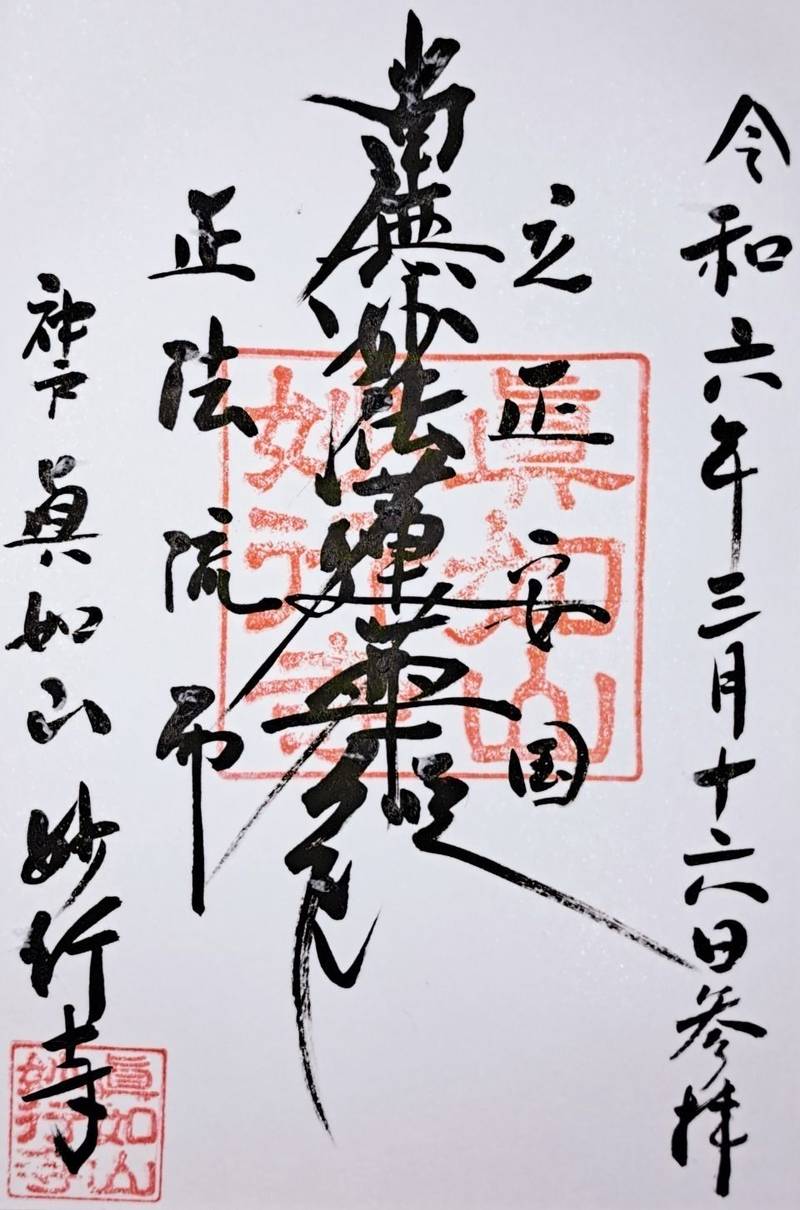 令和六年三月十六日参拝
立正安国
南無妙法蓮華経
正法流布
神戸眞如山妙行寺
眞如山
妙行寺
眞如山
妙行寺